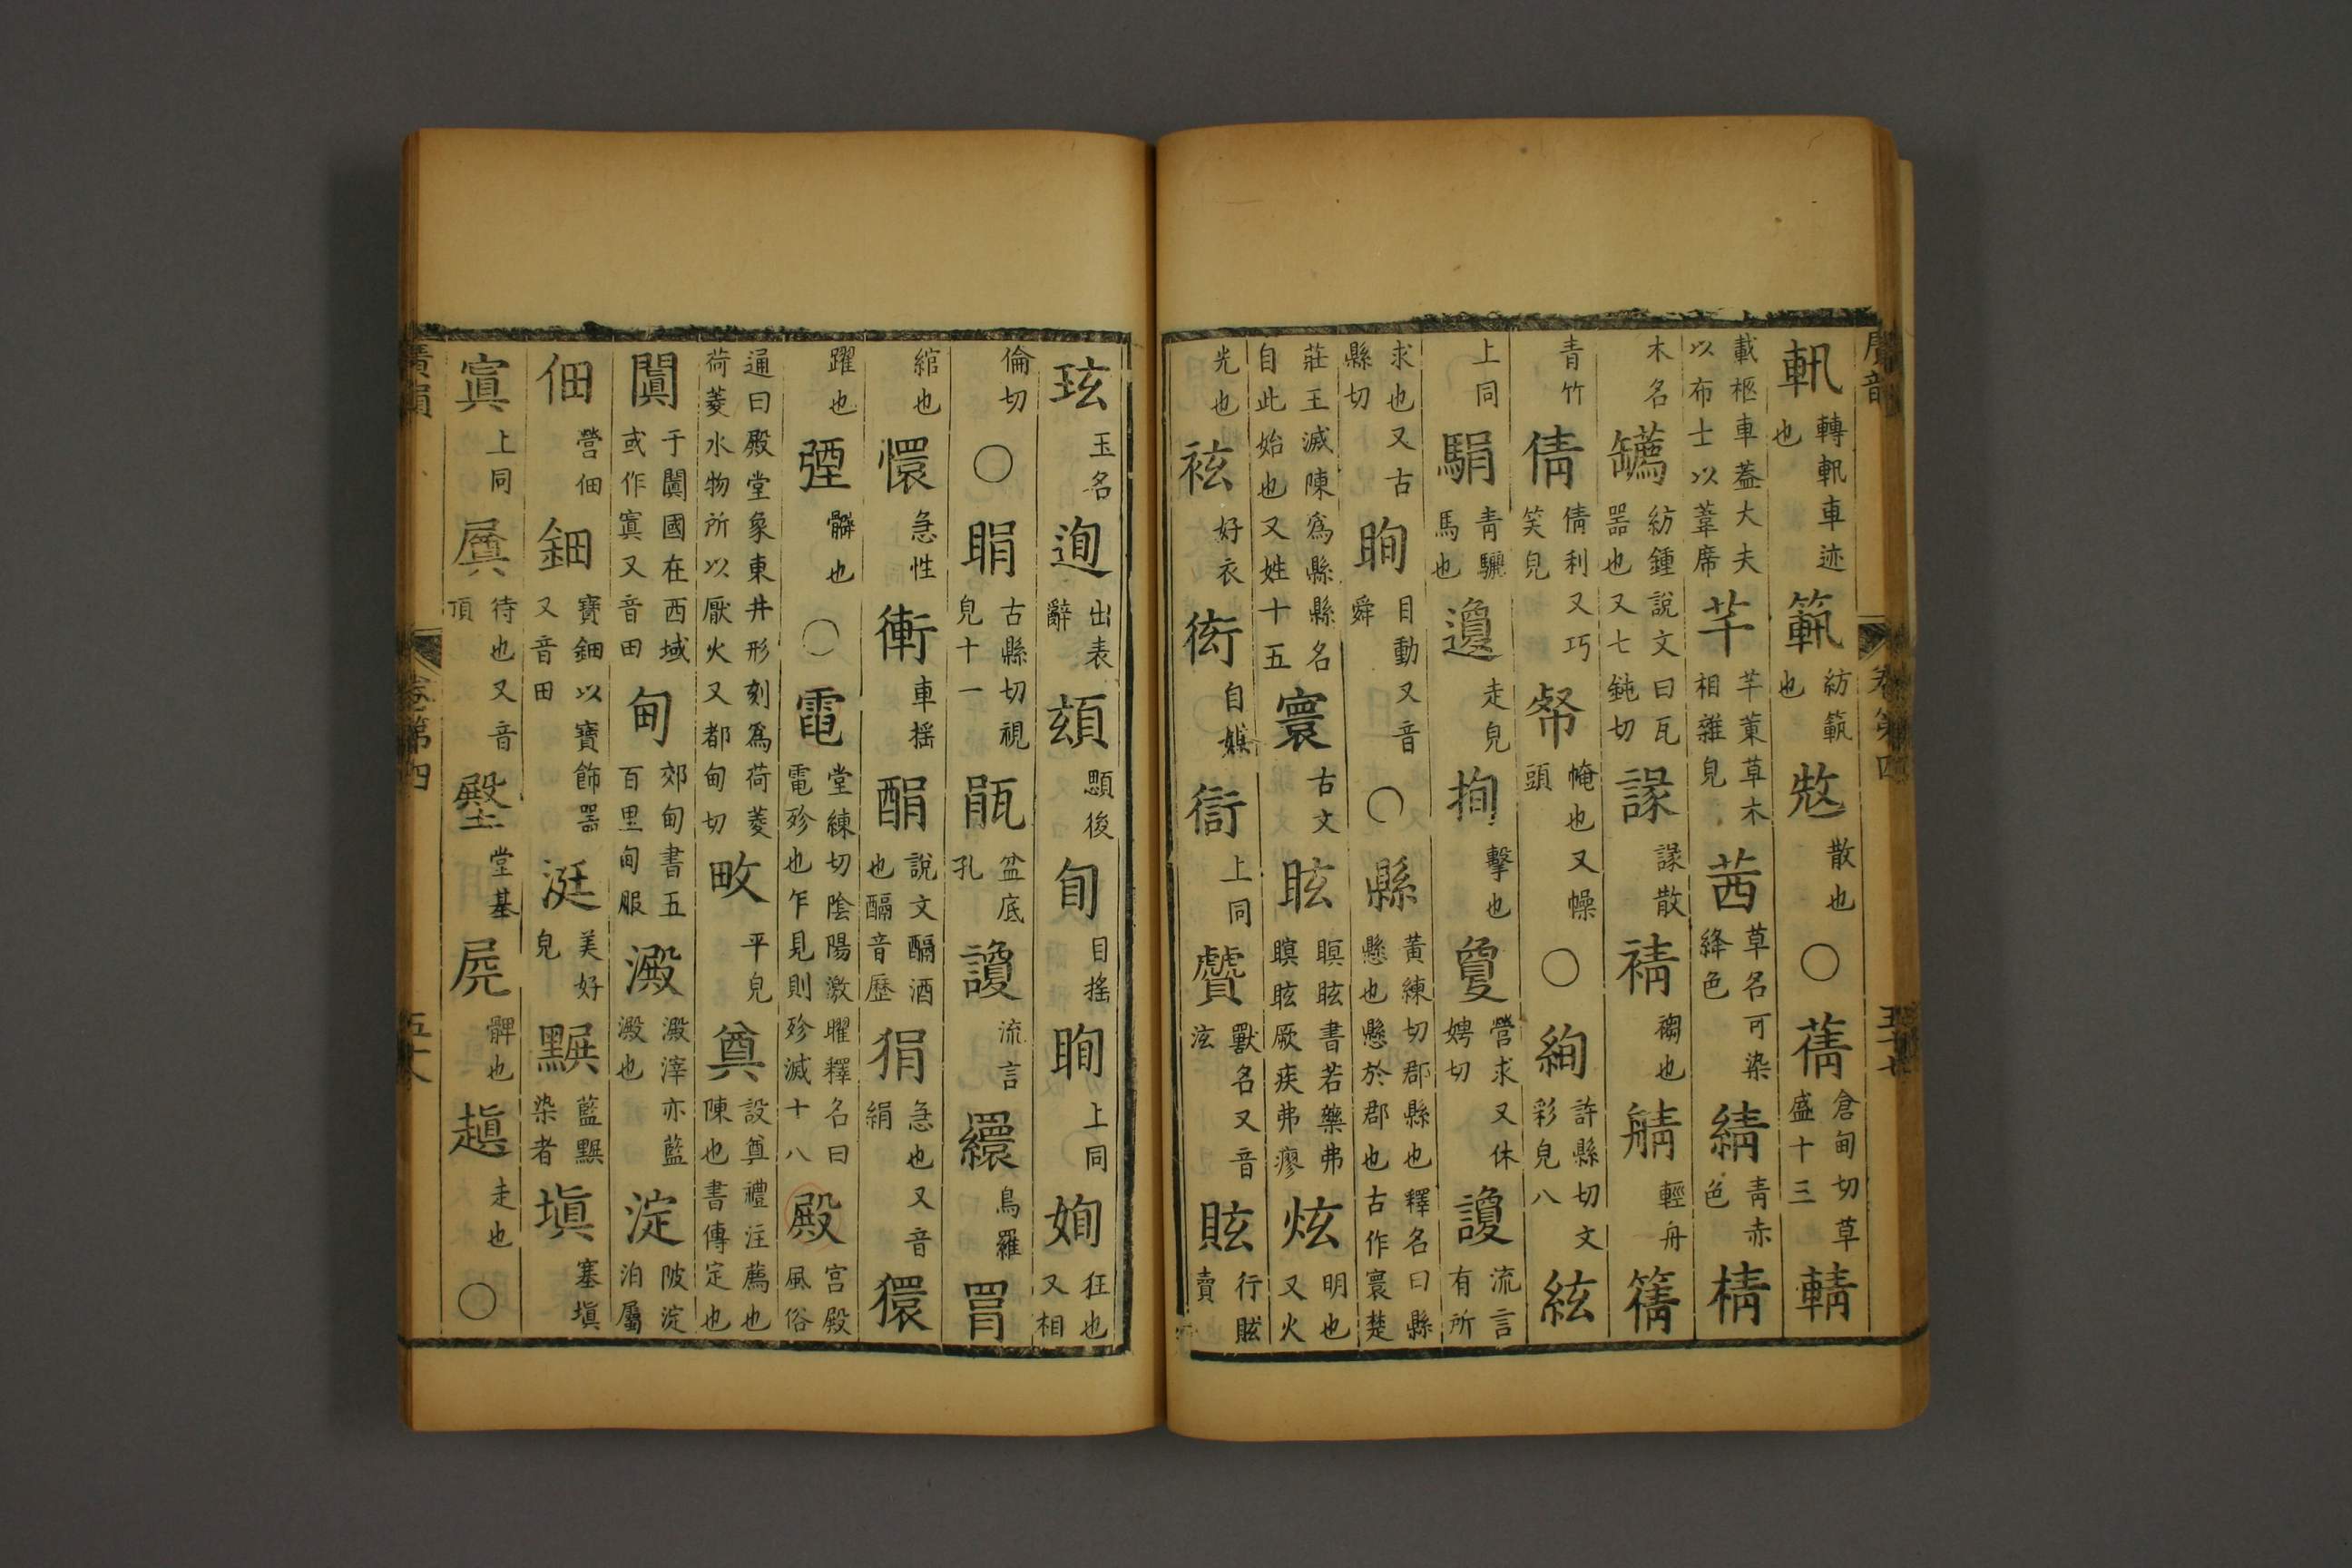 䡅轉䡅車迹也䉵紡䉵也㪔散也〇蒨倉甸切草盛十三輤
載柩車蓋大夫以布士以葦席芊芊䒠草木相雜皃茜草名可染絳色綪青赤色棈
木名䍍紡鍾說文曰瓦器也又七鈍切䜌散䙲襇也䑶輕舟䉜
青竹倩倩利又巧笑皃㡜㡋也又幧頭〇絢許縣切文彩皃八絃
上同駽青驪馬也𨘢走皃拘擊也敻營求又休娉切讂流言有所
求也又古縣切眴目動又音舜〇縣黃練切郡縣也釋名曰縣懸也懸於郡也古作寰楚
莊王滅陳爲縣縣名自此始也又姓十五寰古文眩瞑眩書若藥弗瞑眩厥疾弗瘳炫明也又火
光也袨好衣衒自媒衙上同贙獸名又音泫䀏行䀏賣
玹玉名迿出表辭䪻顋後旬目搖眴上同姰狂也又相
倫切〇睊古縣切視皃十一䀏盆底孔讂流言繯鳥羅罥
綰也懁急性衝車搖酳說文醑酒也醑音歷狷急也又音絹獧
躍也𢐂髀也〇電堂練切陰陽激曜釋名曰電殄也乍見則殄滅十八殿宮殿風俗
通曰殿堂象東井形刻爲荷菱荷菱水物所以厭火又都甸切畋平皃奠設奠禮注薦也陳也書傳定也
闐于闐國在西域或作窴又音田甸郊甸書五百里甸服澱澱滓亦藍澱也淀陂淀泊屬
佃營佃鈿寶鈿以寶飾器又音田涏美好皃黰藍黰染者塡塞塡
窴上同㞟待也又音頂壂堂基㞘髀也䠶走也〇
廣韻
卷第四
五十七
廣韻
卷第四
五十八